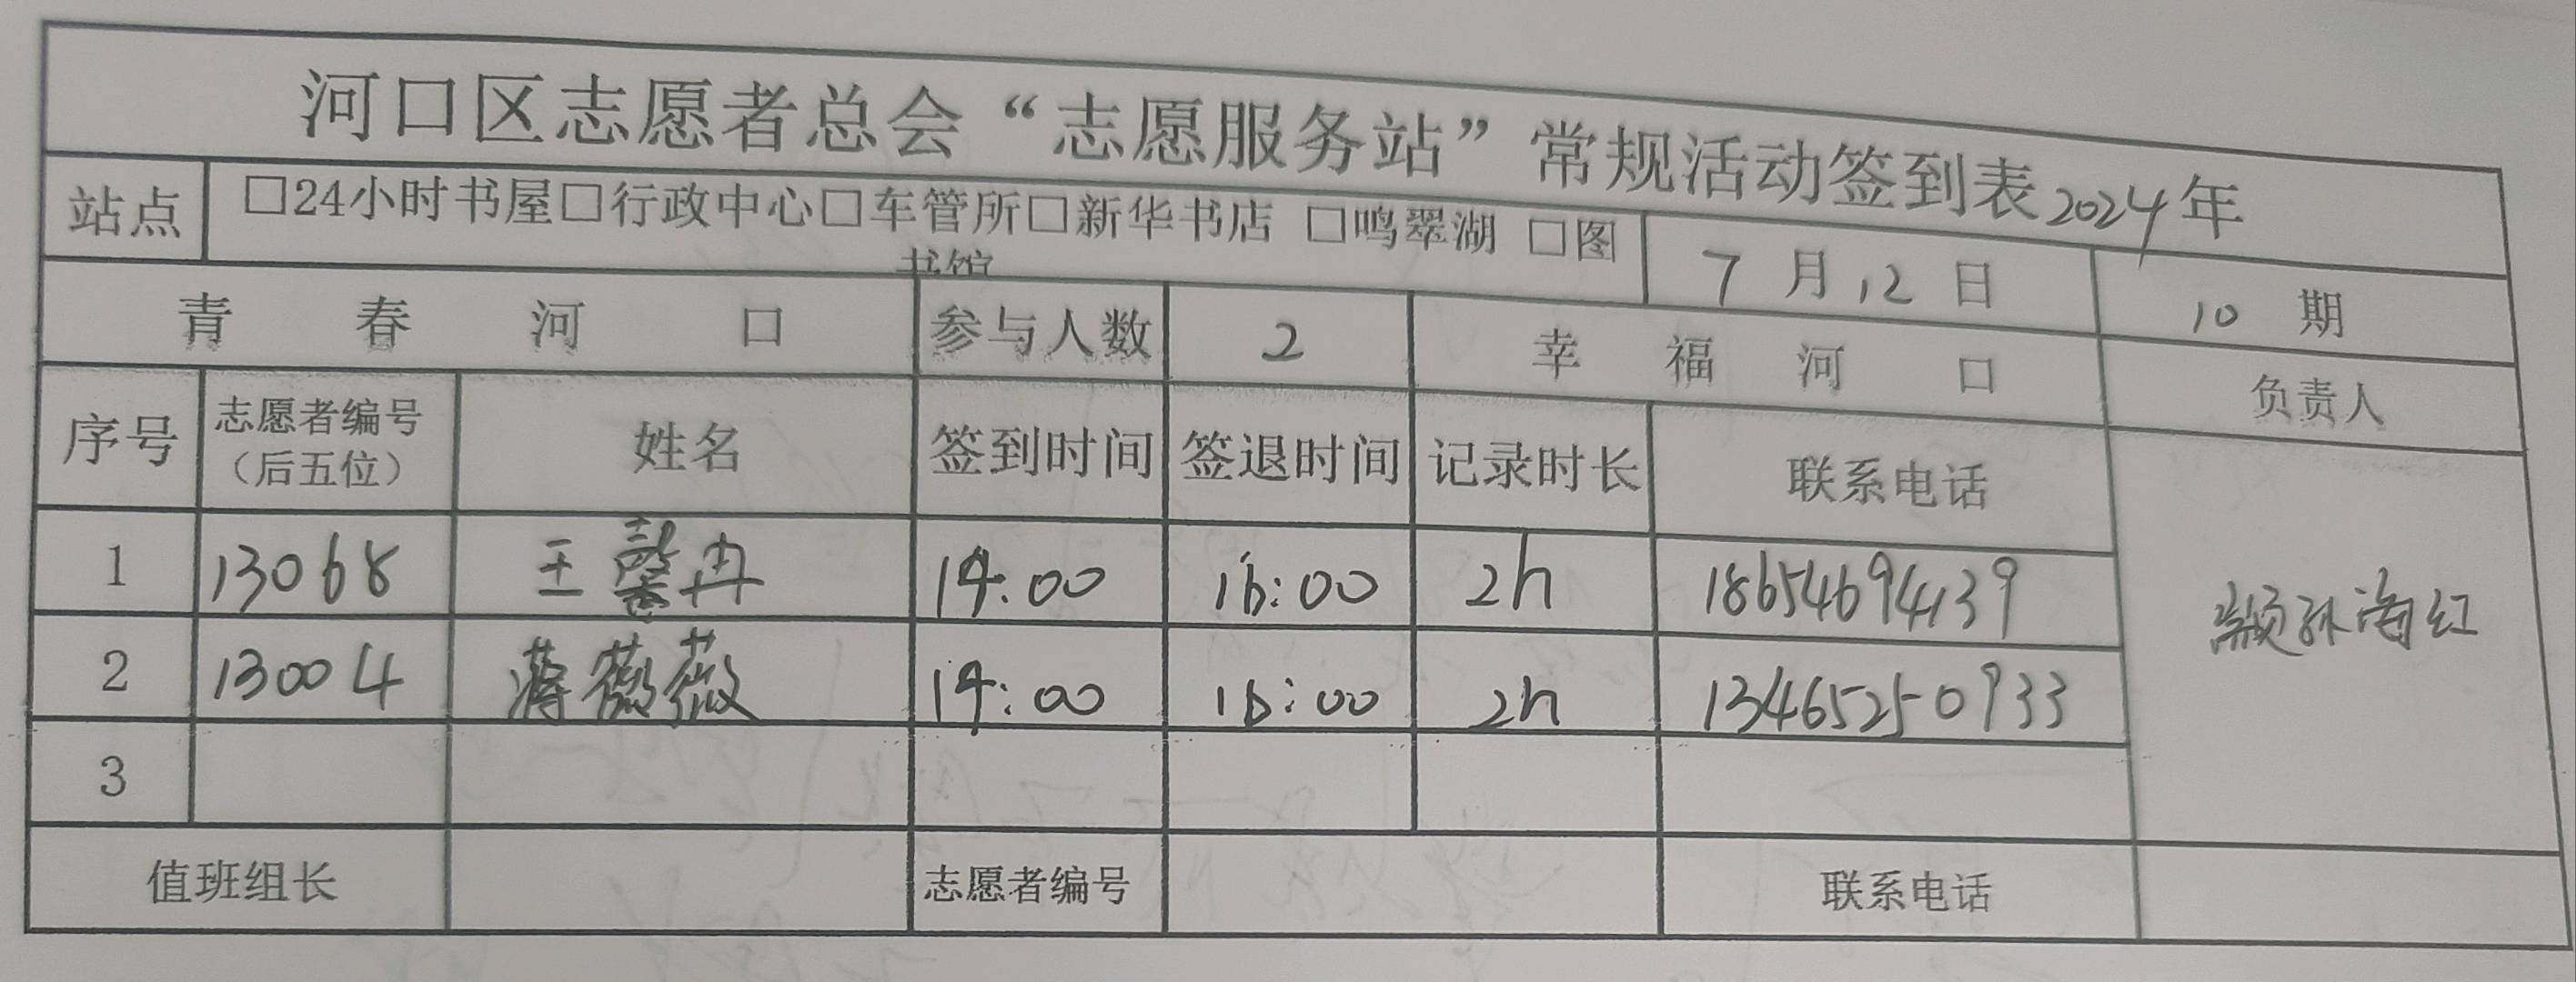 河口区志愿者总会“志愿服务站”常规活动签到表2024年
站点 □24小时书屋□行政中心□车管所□新华书店 □鸣翠湖 □图书馆 7月12日 10 期
青春河口 参与人数 2 幸福河口 负责人
序号 志愿者编号（后五位） 姓名 签到时间 签退时间 记录时长 联系电话
1 13068 王馨冉 14:00 16:00 2h 18654694139
2 13004 蒋薇薇 14:00 16:00 2h 13465250933
孙海红
3
值班组长 志愿者编号 联系电话